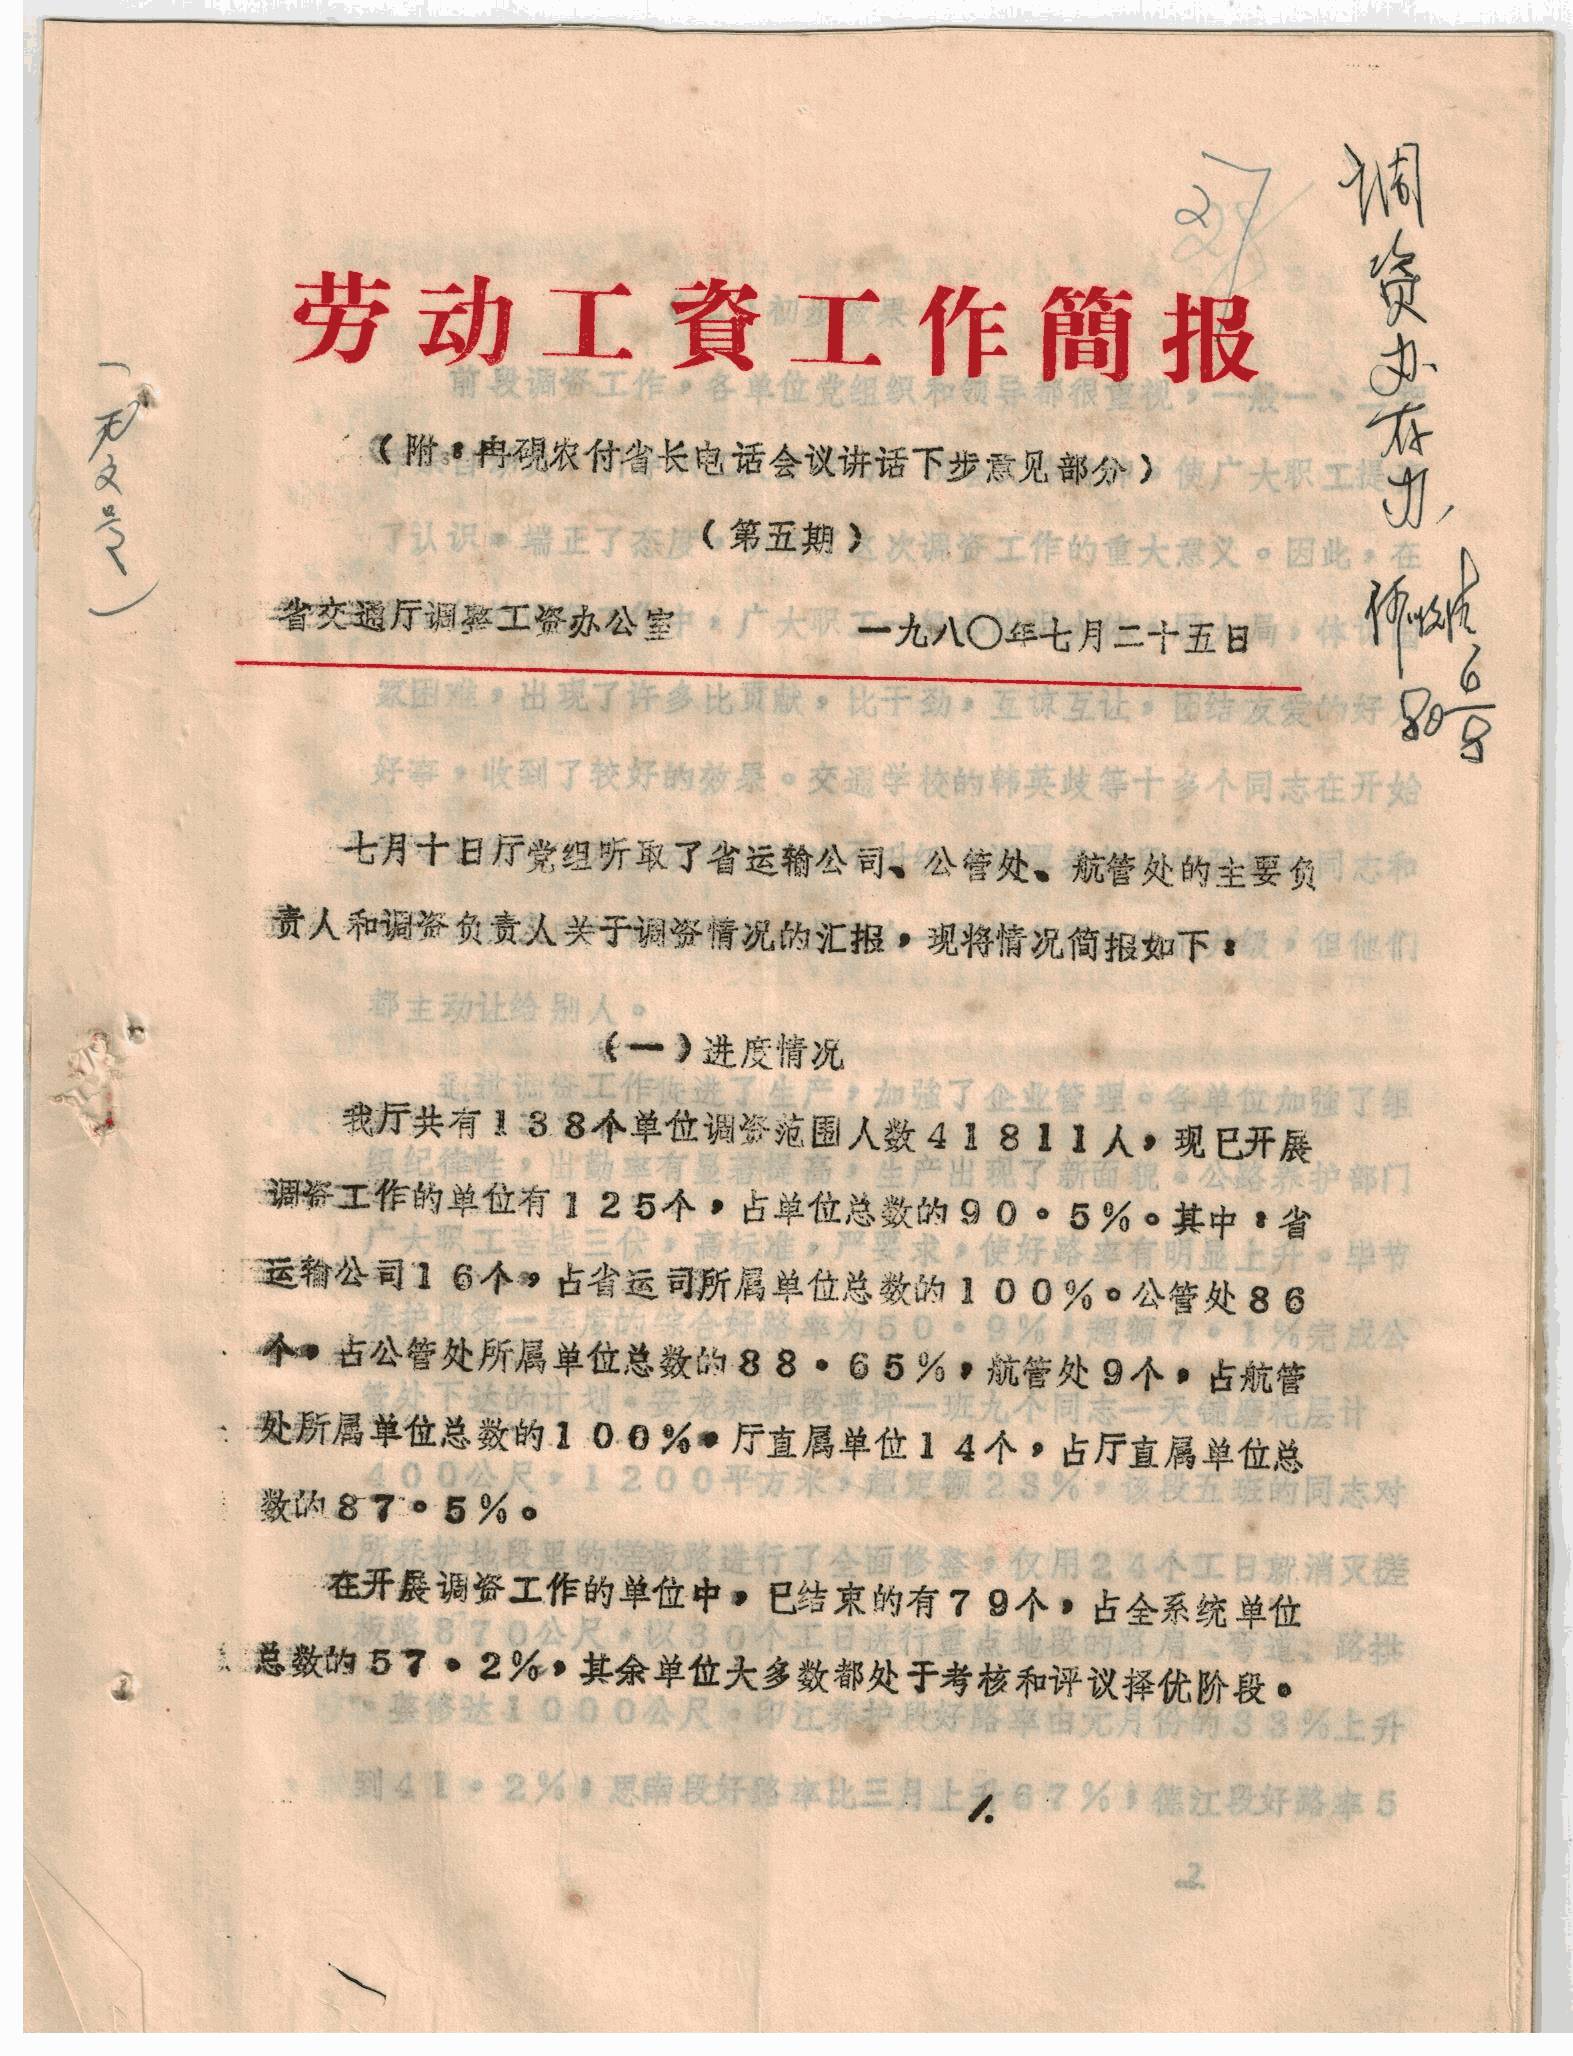 27
劳动工資工作簡报
（附：冉砚农付省长电话会议讲话下步意见部分）
（第五期）
省交通厅调整工资办公室 一九八〇年七月二十五日
调资办存办
80 6/8
（无文号）
七月十日厅党组听取了省运输公司、公管处、航管处的主要负
责人和调资负责人关于调资情况的汇报，现将情况简报如下：
（一）进度情况
我厅共有138个单位调资范围人数41811人，现已开展
调资工作的单位有125个，占单位总数的90．5％。其中：省
运输公司16个，占省运司所属单位总数的100％。公管处86
个，占公管处所属单位总数的88．65％，航管处9个，占航管
处所属单位总数的100％，厅直属单位14个，占厅直属单位总
数的87．5％。
在开展调资工作的单位中，已结束的有79个，占全系统单位
总数的57．2％，其余单位大多数都处于考核和评议择优阶段。
1.